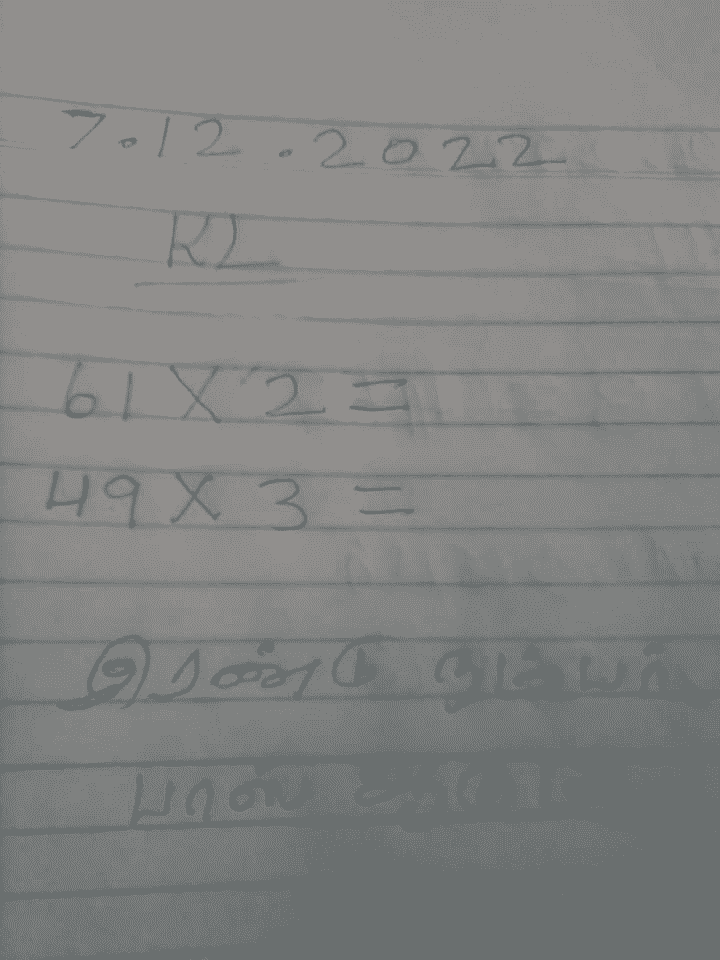 7.12.2022
KL
61 X 2 =
49 X 3 =
இரண்டு நம்பர்
பாஸ்